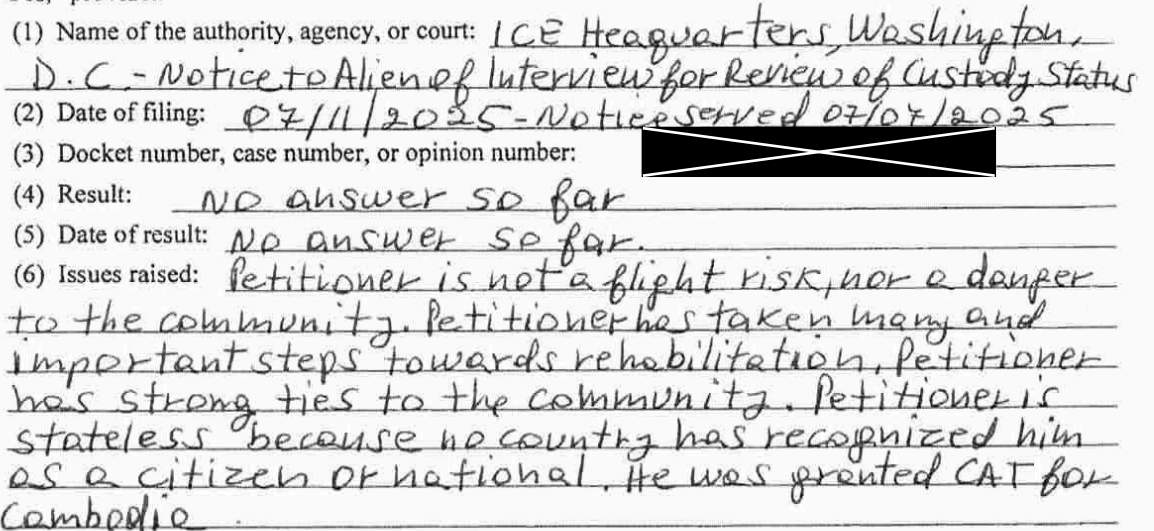 (1) Name of the authority, agency, or court: ICE Heaquarters, Washington,
D.C. - Notice to Alien of Interview for Review of Custody Status
(2) Date of filing: 07/11/2025 - Notice served 07/07/2025
(3) Docket number, case number, or opinion number:
(4) Result: No answer so far
(5) Date of result: No answer so far.
(6) Issues raised: Petitioner is not a flight risk, nor a danger
to the community. Petitioner has taken many and
important steps towards rehabilitation, Petitioner
has strong ties to the community. Petitioner is
stateless because no country has recognized him
as a citizen or national. He was granted CAT for
Cambodia